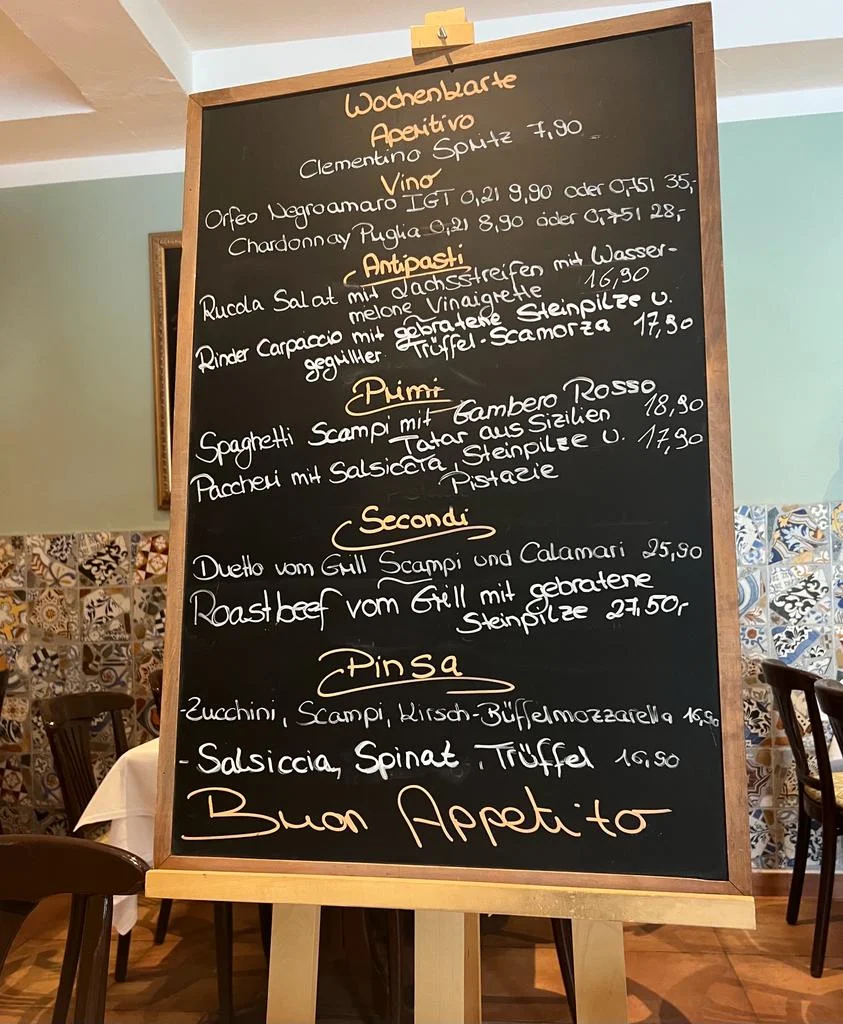 Wochenkarte
Aperitivo
Clementino Spritz 7,90
Vino
Orfeo Negroamaro IGT 0,2l 9,90 oder 0,75l 35,-
Chardonnay Puglia 0,2l 8,90 oder 0,75l 28,-
Antipasti
Rucola Salat mit Lachsstreifen mit Wasser-
melone Vinaigrette 16,90
Rinder Carpaccio mit gebratene Steinpilze u.
gegrillter Trüffel-Scamorza 17,90
Primi
Spaghetti Scampi mit Gambero Rosso
Tatar aus Sizilien 18,90
Paccheri mit Salsiccia, Steinpilze u. 17,90
Pistazie
Secondi
Duetto vom Grill Scampi und Calamari 25,90
Roastbeef vom Grill mit gebratene
Steinpilze 27,50,-
Pinsa
-Zucchini, Scampi, Kirsch-Büffelmozzarella 16,90
- Salsiccia, Spinat, Trüffel 16,90
Buon Appetito